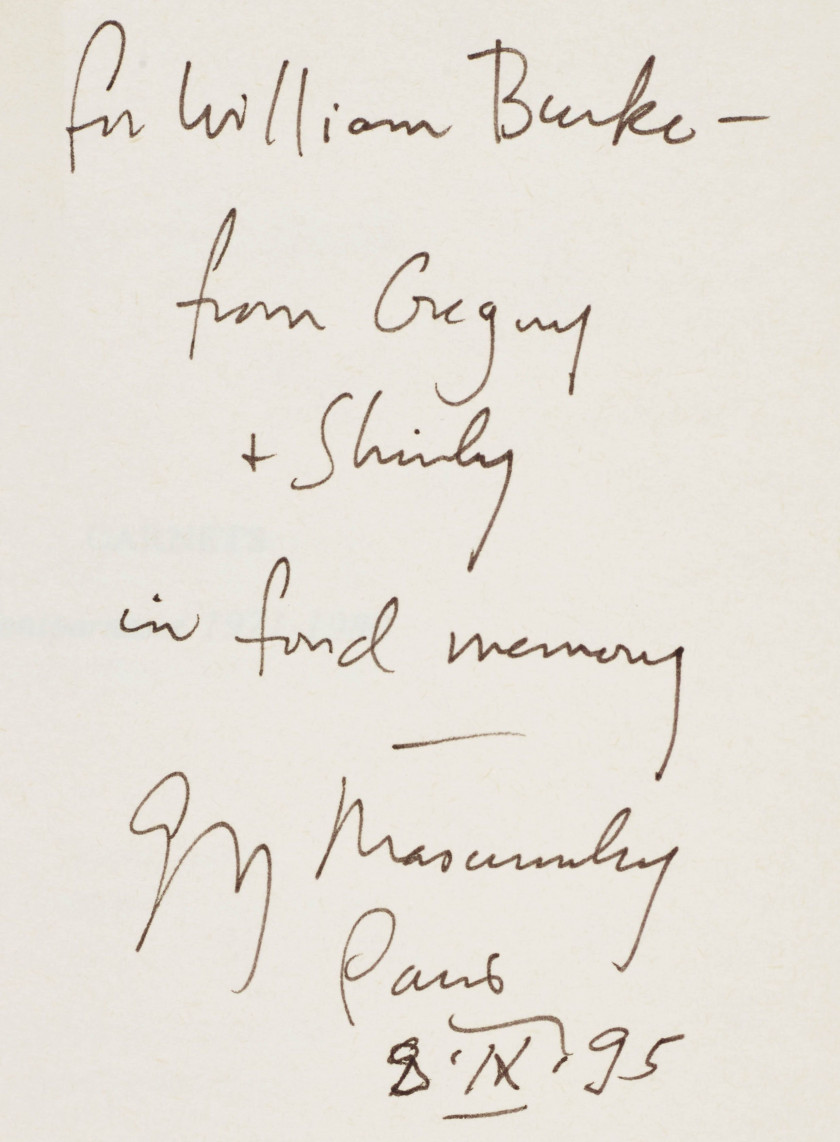 for William Burke –
from Gregory
+ Shirley
in fond memory
Masurovsky
Paris
8·IX·95